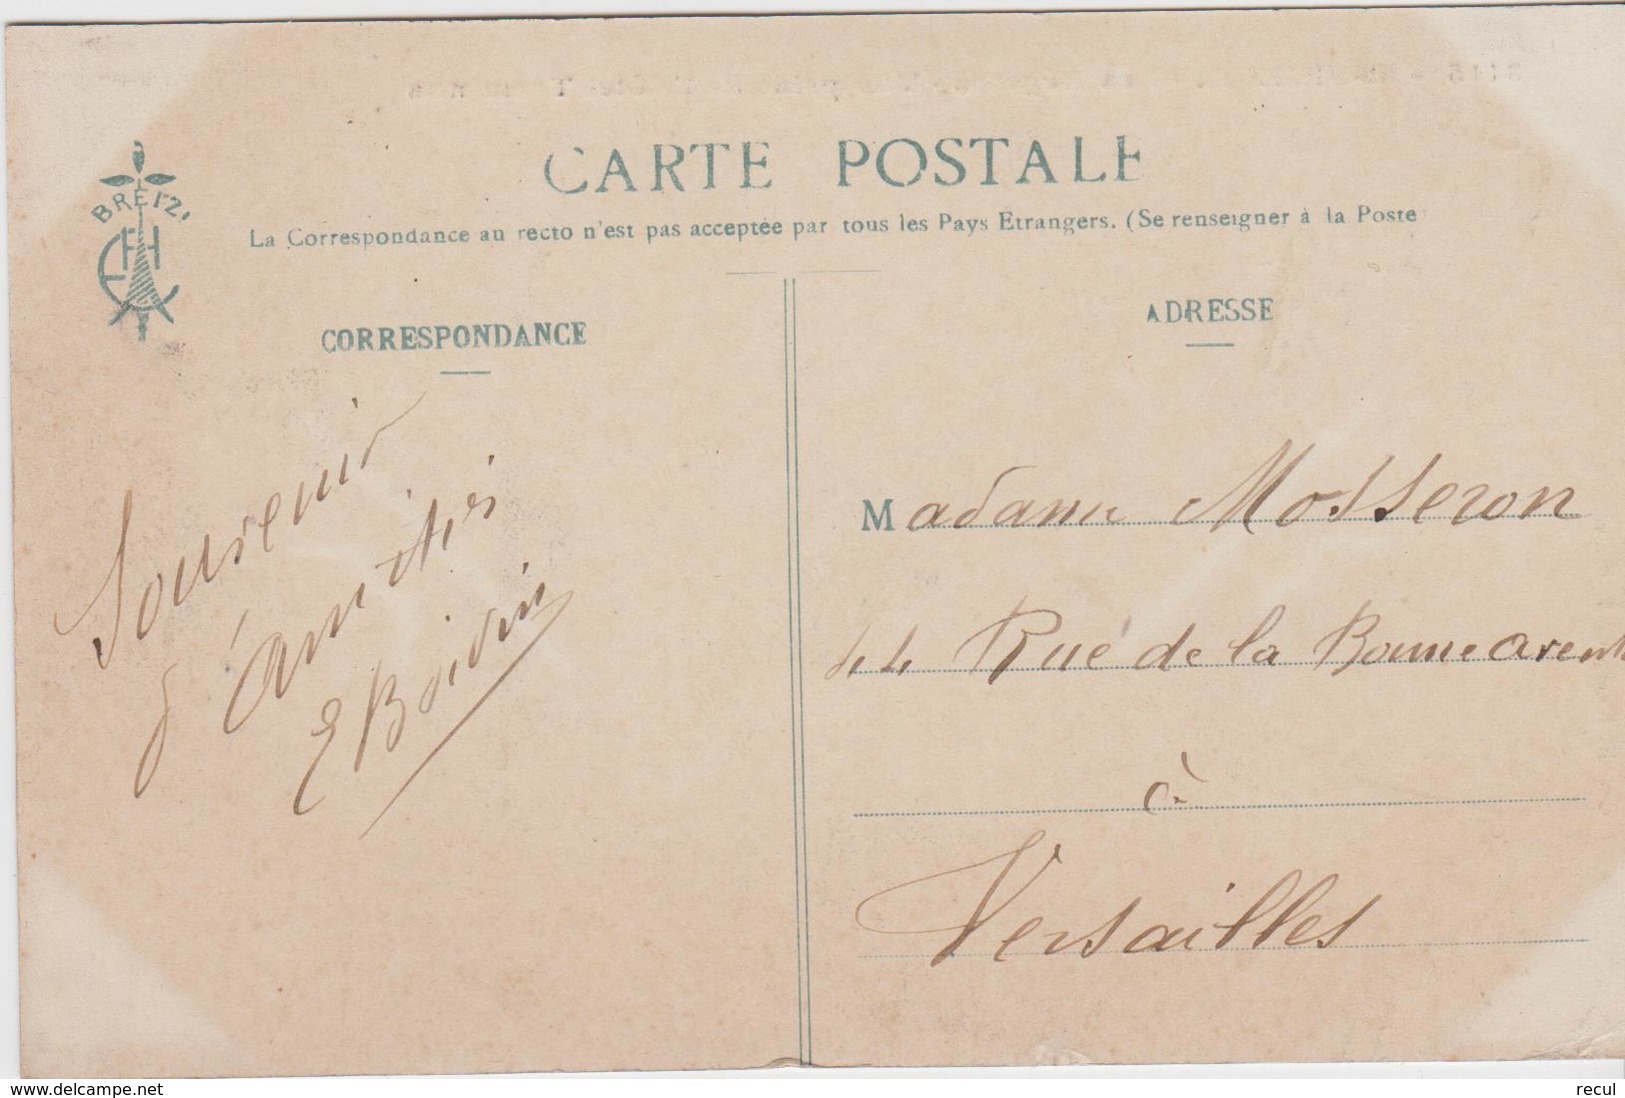 CARTE POSTALE
BREIZ!
La Correspondance au recto n'est pas acceptée par tous les Pays Etrangers. (Se renseigner à la Poste
CORRESPONDANCE
Souvenir
d'amitiés
E Boivin
ADRESSE
Madame Mosseron
44 Rue de la Bonne avent
à
Versailles
www.delcampe.net
recul